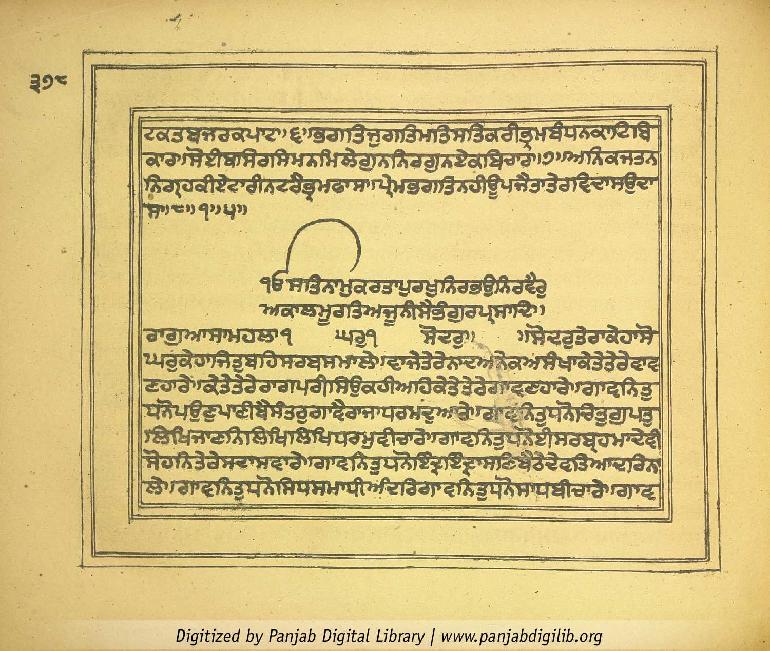 ੩੭੮
ਟਕਤਬਜਰਕਪਾਟ॥੬॥ਭਗਤਿਜੁਗਤਿਮਤਿਸਤਿਕਰੀਭ੍ਰਮਬੰਧਨਕਾਟਿਬਿ
ਕਾਰ॥ਸੋਈਬਸਿਰਸਿਮਨਮਿਲੇਗੁਨਨਿਰਗੁਨਏਕਬਿਚਾਰ॥੭॥ਅਨਿਕਜਤਨ
ਨਿਗ੍ਰਹਕੀਏਟਾਰੀਨਟਰੈਭ੍ਰਮਫਾਸ॥ਪ੍ਰੇਮਭਗਤਿਨਹੀਊਪਜੈਤਾਤੇਰਵਿਦਾਸਉਦਾ
ਸ॥੮॥੧॥੫॥
ੴਸਤਿਨਾਮੁਕਰਤਾਪੁਰਖੁਨਿਰਭਉਨਿਰਵੈਰੁ
ਅਕਾਲਮੂਰਤਿਅਜੂਨੀਸੈਭੰਗੁਰਪ੍ਰਸਾਦਿ॥
ਰਾਗੁਆਸਾਮਹਲਾ੧ ਘਰੁ੧ ਸੋਦਰੁ॥ ॥ਸੋਦਰੁਤੇਰਾਕੇਹਾਸੋ
ਘਰੁਕੇਹਾਜਿਤੁਬਹਿਸਰਬਸਮਾਲੇ॥ਵਾਜੇਤੇਰੇਨਾਦਅਨੇਕਅਸੰਖਾਕੇਤੇਤੇਰੇਵਾਵ
ਣਹਾਰੇ॥ਕੇਤੇਤੇਰੇਰਾਗਪਰੀਸਿਉਕਹੀਅਹਿਕੇਤੇਤੇਰੇਗਾਵਣਹਾਰੇ॥ਗਾਵਨਿਤੁ
ਧਨੋਪਉਣੁਪਾਣੀਬੈਸੰਤਰੁਗਾਵੈਰਾਜਾਧਰਮਦੁਆਰੇ॥ਗਾਵਨਿਤੁਧਨੋਚਿਤੁਗੁਪਤੁ
ਲਿਖਿਜਾਣਨਿਲਿਖਿਲਿਖਿਧਰਮੁਵੀਚਾਰੇ॥ਗਾਵਨਿਤੁਧਨੋਈਸਰਬ੍ਰਹਮਾਦੇਵੀ
ਸੋਹਨਿਤੇਰੇਸਦਾਸਵਾਰੇ॥ਗਾਵਨਿਤੁਧਨੋਇੰਦ੍ਰਇੰਦ੍ਰਾਸਣਿਬੈਠੇਦੇਵਤਿਆਦਰਿਨਾ
ਲੇ॥ਗਾਵਨਿਤੁਧਨੋਸਿਧਸਮਾਧੀਅੰਦਰਿਗਾਵਨਿਤੁਧਨੋਸਾਧਬੀਚਾਰੇ॥ਗਾਵ
Digitized by Panjab Digital Library | www.panjabdigilib.org